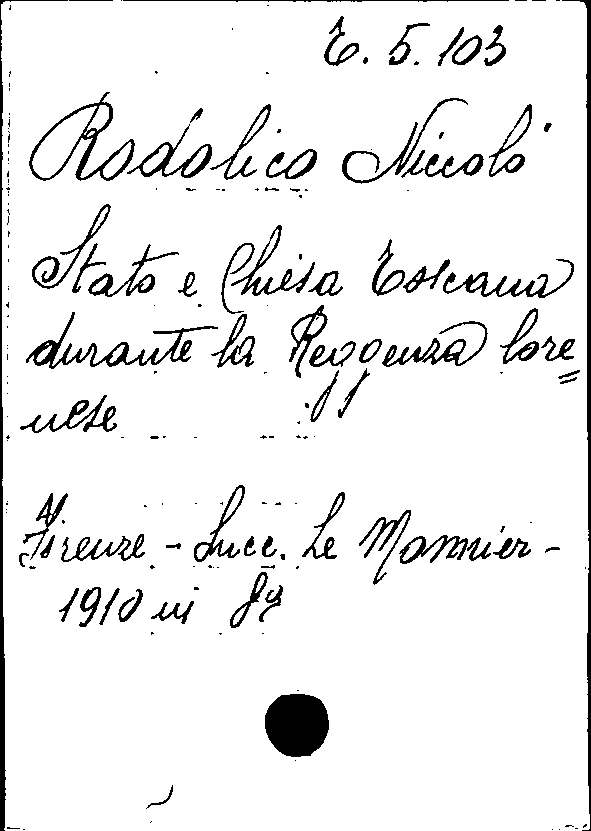 E. 5. 103
Rodolico Niccolò
Stato e Chiesa Toscana
durante la Reggenza lore=
nese
Firenze - Succ. Le Monnier -
1910 in 8º